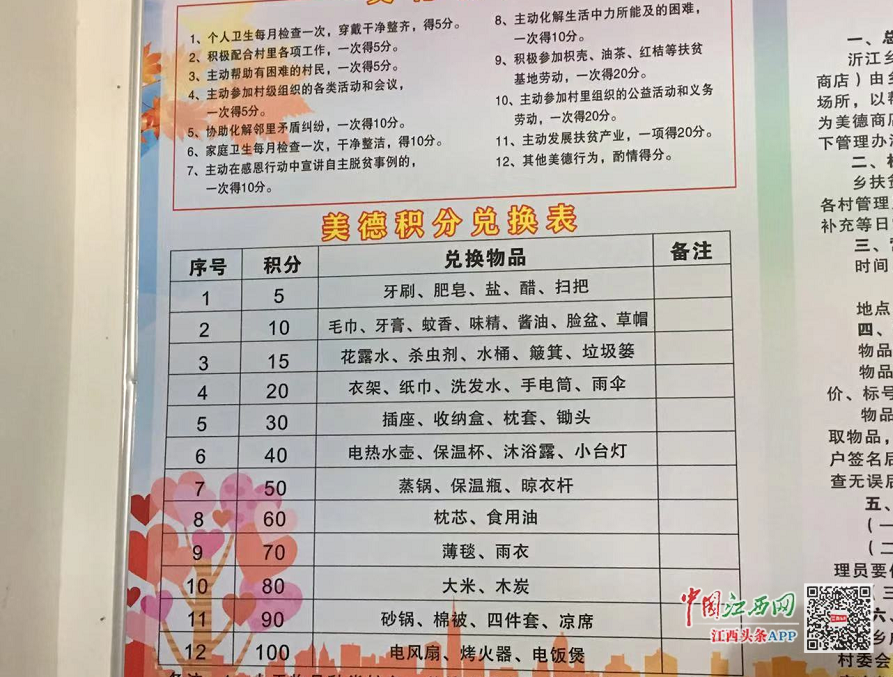 1、个人卫生每月检查一次，穿戴干净整齐，得5分。
2、积极配合村里各项工作，一次得5分。
3、主动帮助有困难的村民，一次得5分。
4、主动参加村级组织的各类活动和会议，
一次得5分。
5、协助化解邻里矛盾纠纷，一次得10分。
6、家庭卫生每月检查一次，干净整洁，得10分。
7、主动在感恩行动中宣讲自主脱贫事例的，
一次得10分。
8、主动化解生活中力所能及的困难，
一次得10分。
9、积极参加枳壳、油茶、红桔等扶贫
基地劳动，一次得20分。
10、主动参加村里组织的公益活动和义务
劳动，一次得20分。
11、主动发展扶贫产业，一项得20分。
12、其他美德行为，酌情得分。
美德积分兑换表
序号 积分 兑换物品 备注
1 5 牙刷、肥皂、盐、醋、扫把
2 10 毛巾、牙膏、蚊香、味精、酱油、脸盆、草帽
3 15 花露水、杀虫剂、水桶、簸箕、垃圾篓
4 20 衣架、纸巾、洗发水、手电筒、雨伞
5 30 插座、收纳盒、枕套、锄头
6 40 电热水壶、保温杯、沐浴露、小台灯
7 50 蒸锅、保温瓶、晾衣杆
8 60 枕芯、食用油
9 70 薄毯、雨衣
10 80 大米、木炭
11 90 砂锅、棉被、四件套、凉席
12 100 电风扇、烤火器、电饭煲
一、总
沂江乡
商店）由乡
场所，以
为美德商店
下管理办
二、
乡扶贫
各村管理
补充等日
三、
时间
地点
四、
物品
物品
价、标号
物品
取物品，
户签名后
查无误后
五、
（一
（二
理员要
三
六、
乡
村委会
中国江西网
江西头条APP